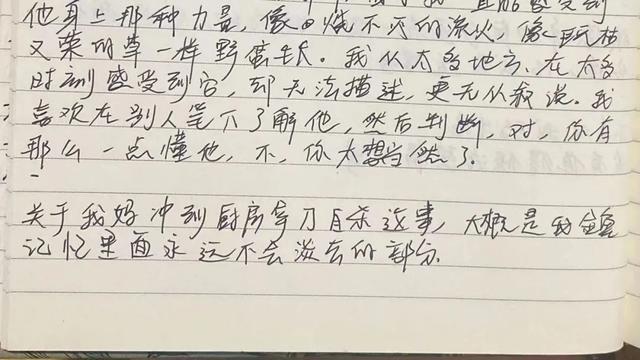 他身上那种力量,像烧不灭的流火,像一玩枯
又荣的草一样野蛮生长。我从太多地方、在太多
时刻感受到它,却无法描述,更无从叙说。我
喜欢在别人笔下了解他,然后判断 对,你有
那么一点懂他,不,你太想当然了。
关于我妈冲到厨房拿刀自杀这事,大概是我
记忆里面永远不会淡去的部分.